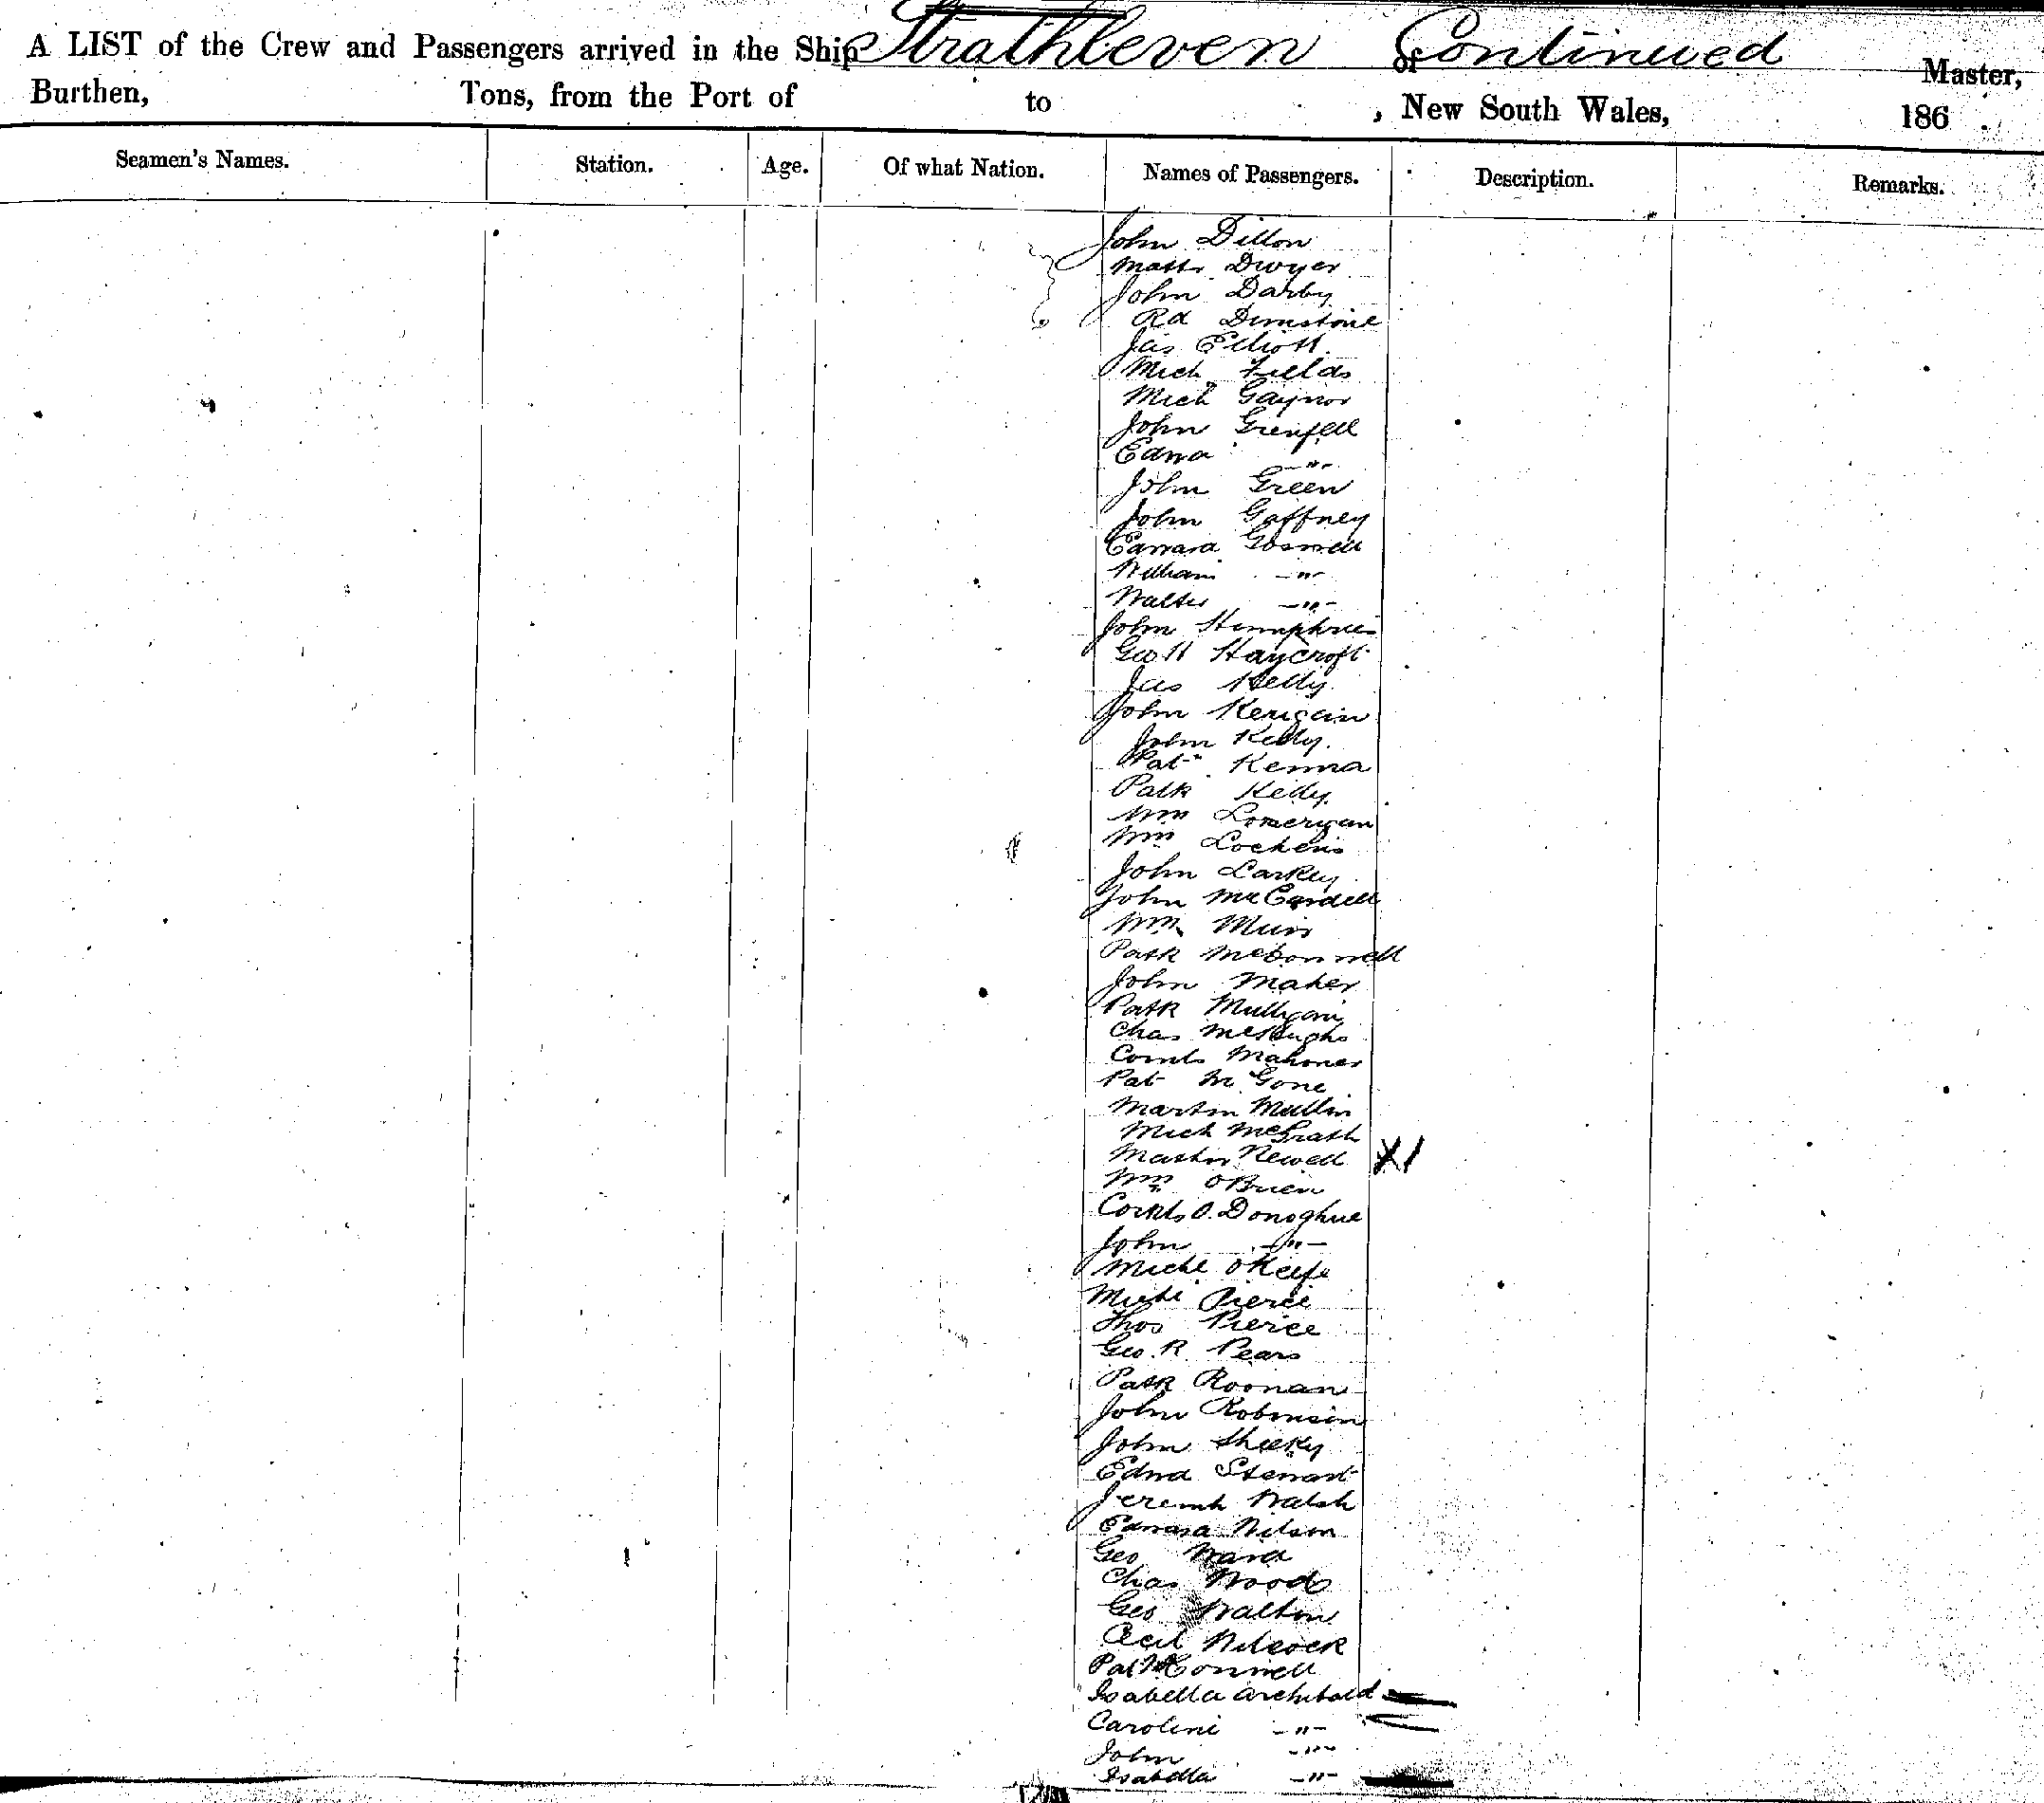 A LIST of the Crew and Passengers arrived in the Ship Strathleven Continued of Master,
Burthen, Tons, from the Port of to , New South Wales, 186 .
Seamen's Names. Station. Age. Of what Nation. Names of Passengers. Description. Remarks.
John Dillon
Matts Dwyer
John Darby
Rd Dunstone
Jas Elliott
Mich Fields
Mich Gaynor
John Grenfell
Edna -"-
John Green
John Gaffney
Edward Gosnell
William -"-
Walter -"-
John Humphries
Geo H Haycroft
Jas Kelly
John Kerigain
John Kelly
Pat Kenna
Patk Kelly
Wm Lonergan
Wm Lockens
John Larkey
John McCardell
Wm Muir
Patk McDonnell
John Maher
Patk Mulligan
Chas McHughs
Cornls Mahoner
Pat McGone
Martin Mullin
Mich McGrath
Martin Newell X/
Wm OBrien
Cornls O.Donoghue
John -"-
Michl OKeefe
Michl Pierce
Thos Pierce
Geo. R. Pears
Patk Roonan
John Robinson
John Sheeky
Edwd Stewart
Jeremh Walsh
Edward Wilson
Geo Ward
Chas Woods
Geo Walton
Cecil Wilcock
Pat McConnell
Isabella Archibald
Caroline -"-
John -"-
Isabella -"-